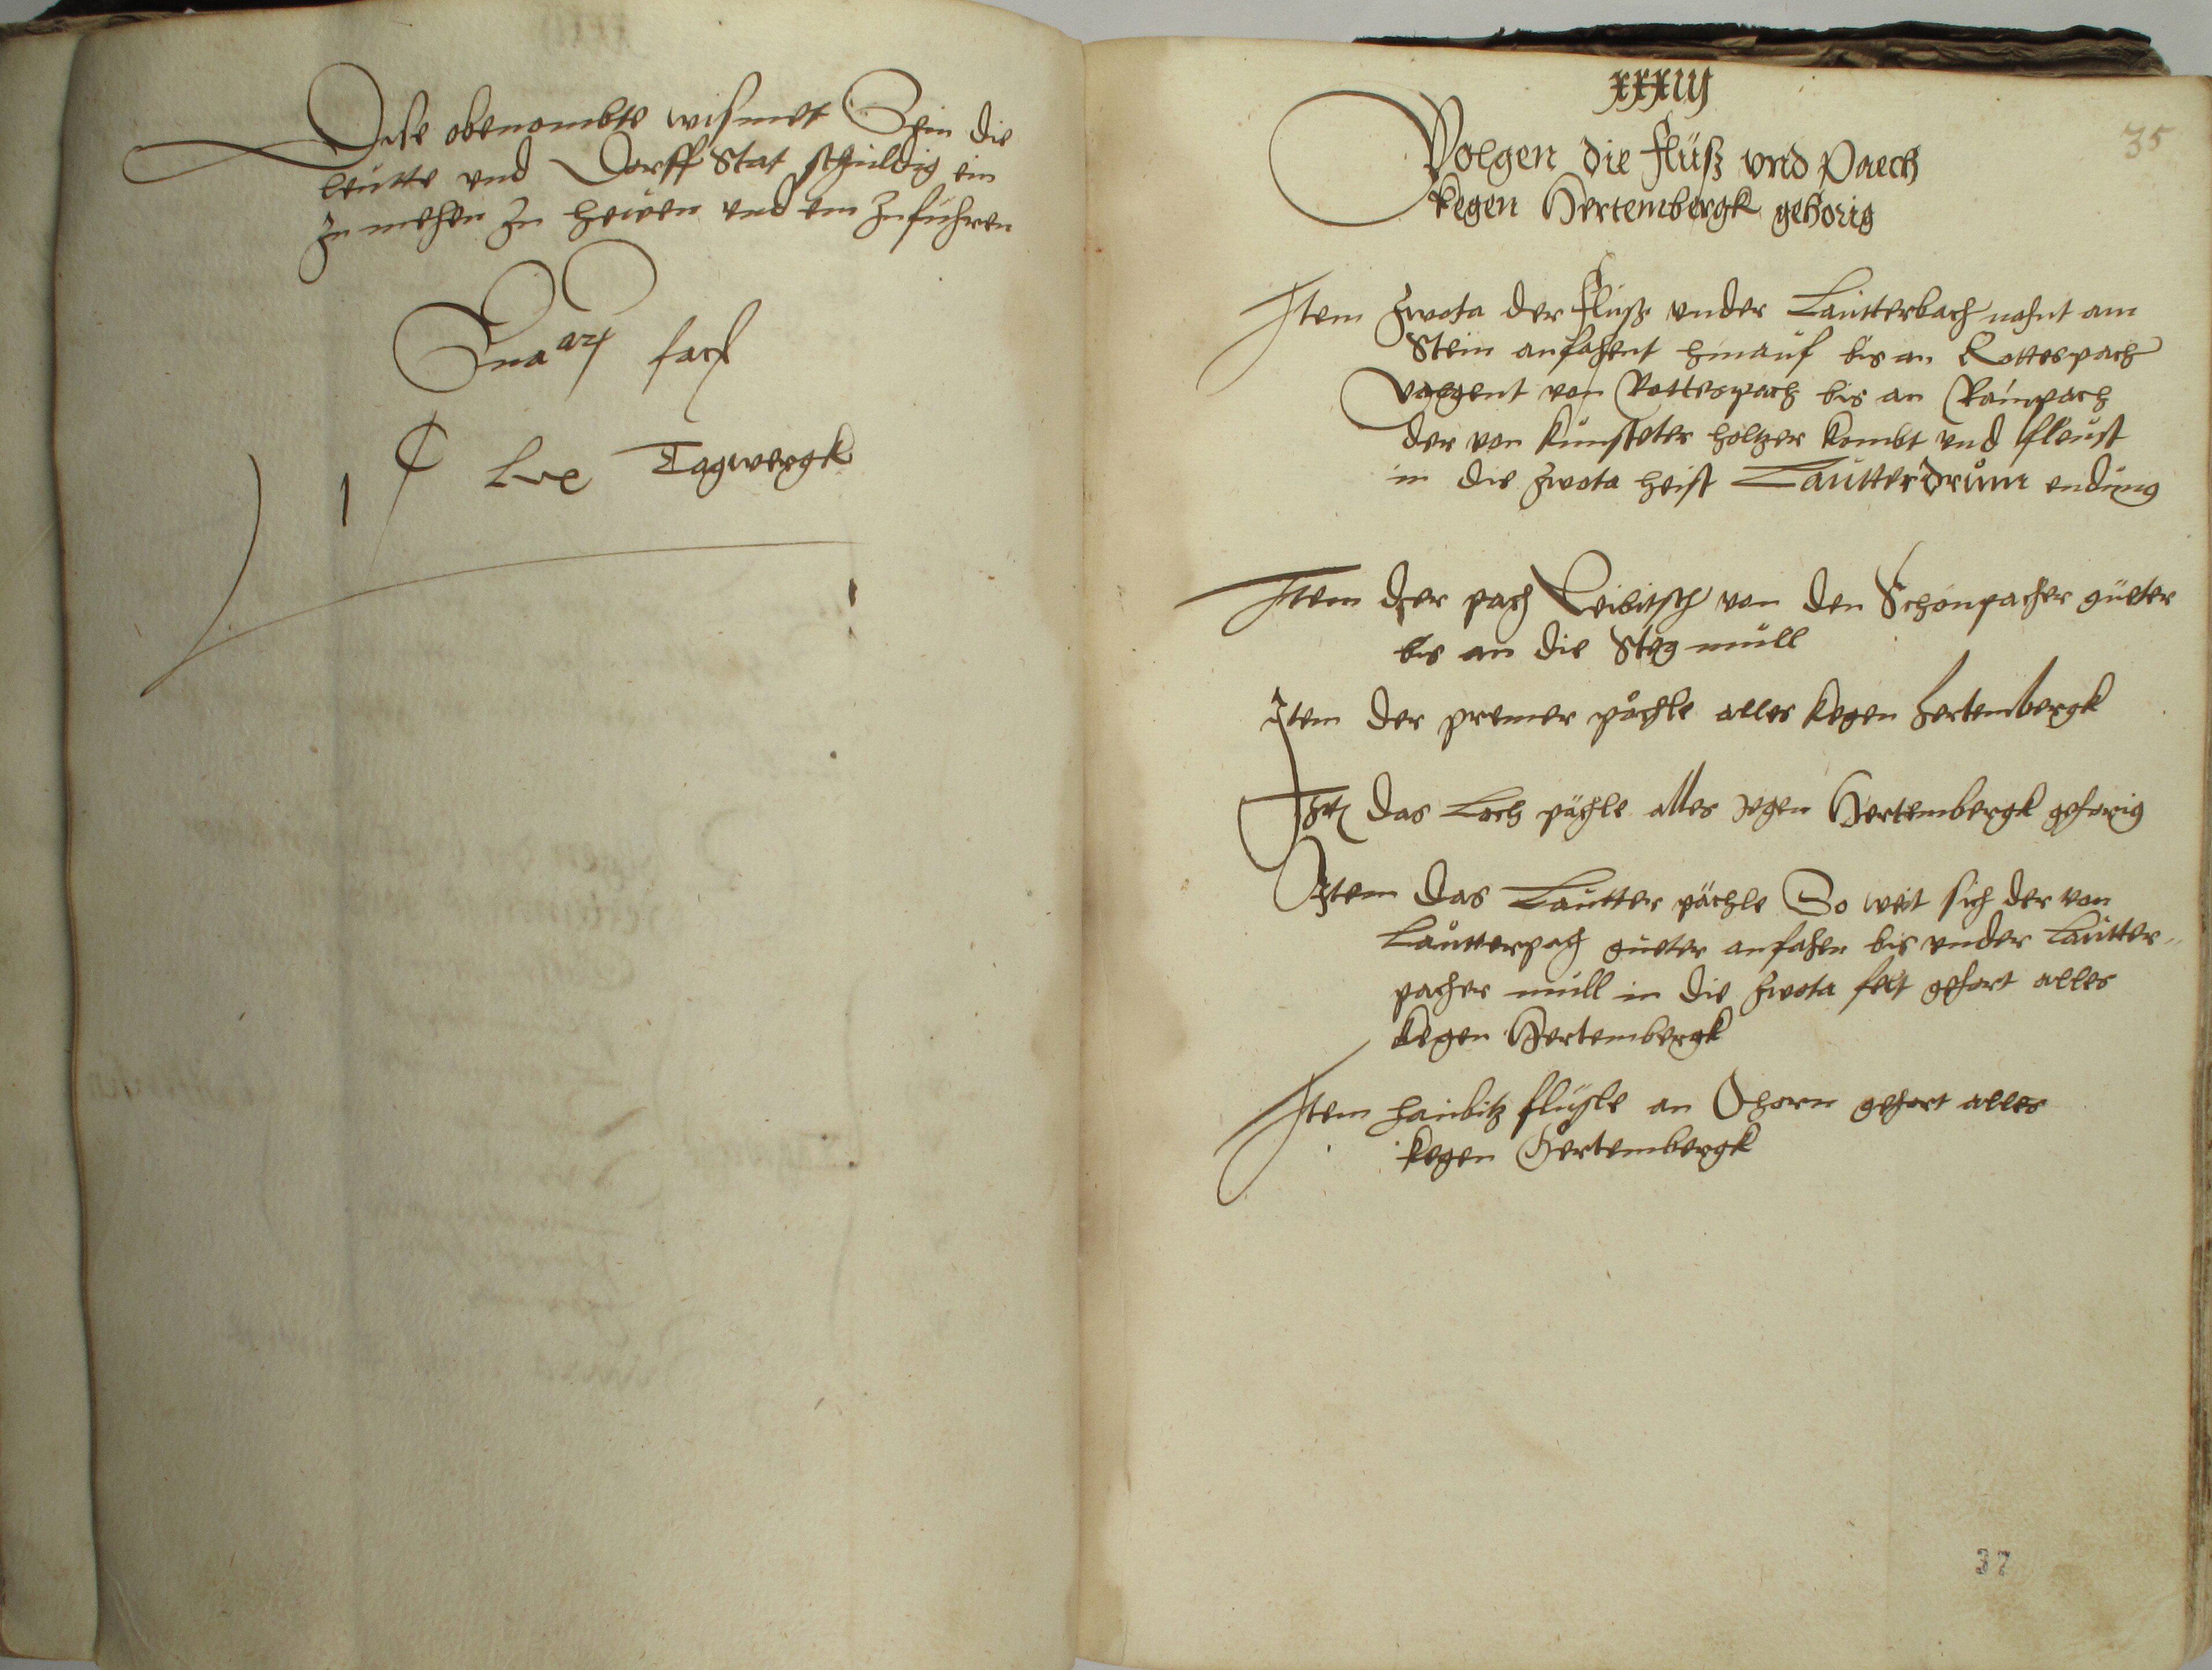 Dise obenombte wismet Sein die
leutte und Dorff Stat schuldig ein
zu mehen zu heiven und ein zufuhren
Sua
Tagwergk
xxxiij
35
Volgen die flüß vnd Paech
kegen Hertembergk gehörig
Item Zwota der fluß vnder Lautterbach nahnt am
Stein anfahent hinauf bis an Rottespach
Volgent von Rottespach bis an Rainpach
der von kunsteter holtzer kombt und fleust
in die Zwota heist Lautterdrům endung
Item der pach Leibitsch von den Schonpacher gueter
bis an die Steg mull
Item der premer pächle alles kegen hertembergk
Itm das Loch pächle alles kegen Hertembergk gehorig
Item das Lautter pächle So weit sich der von
Lautterpach gueter anfahen bis vnder Lautter-
pacher mull in die Zwota felt gehort alles
kegen Hertembergk
Item haibitz flüsle an Ohorn gehort alles
kegen Hertembergk
37